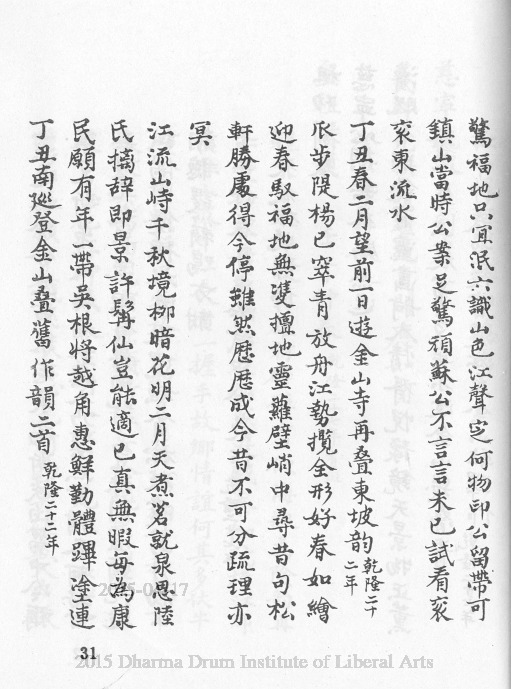 驚福地只宜泯六識山色江聲定何物印公留帶可
鎮山當時公案足驚頑蘇公不言言未已試看衮
衮東流水
丁丑春二月望前一日遊金山寺再叠東坡韵乾隆二十二年
爪步隄楊已窣青放舟江勢攬全形好春如繪
迎春馭福地無雙擅地靈蘿壁峭中尋昔句松
軒勝處得今停雖然歷歷成今昔不可分疏理亦
冥
江流山峙千秋境柳暗花明二月天煮茗就泉思陸
氏摛辭即景許髯仙豈能適已真無暇每為康
民願有年一帶吳根將越角惠鮮勤體蹕塗連
丁丑南廵登金山叠舊作韻二首乾隆二十二年
31
2015 Dharma Drum Institute of Liberal Arts